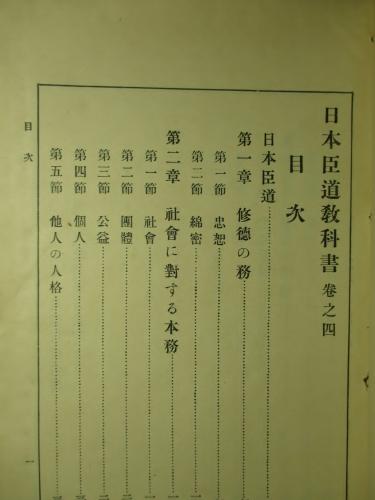 日本臣道教科書 卷之四
目次
日本臣道
第一章 修德の務
第一節 忠恕
第二節 綿密
第二章 社會に對する本務
第一節 社會
第二節 團體
第三節 公益
第四節 個人
第五節 他人の人格
目次
一